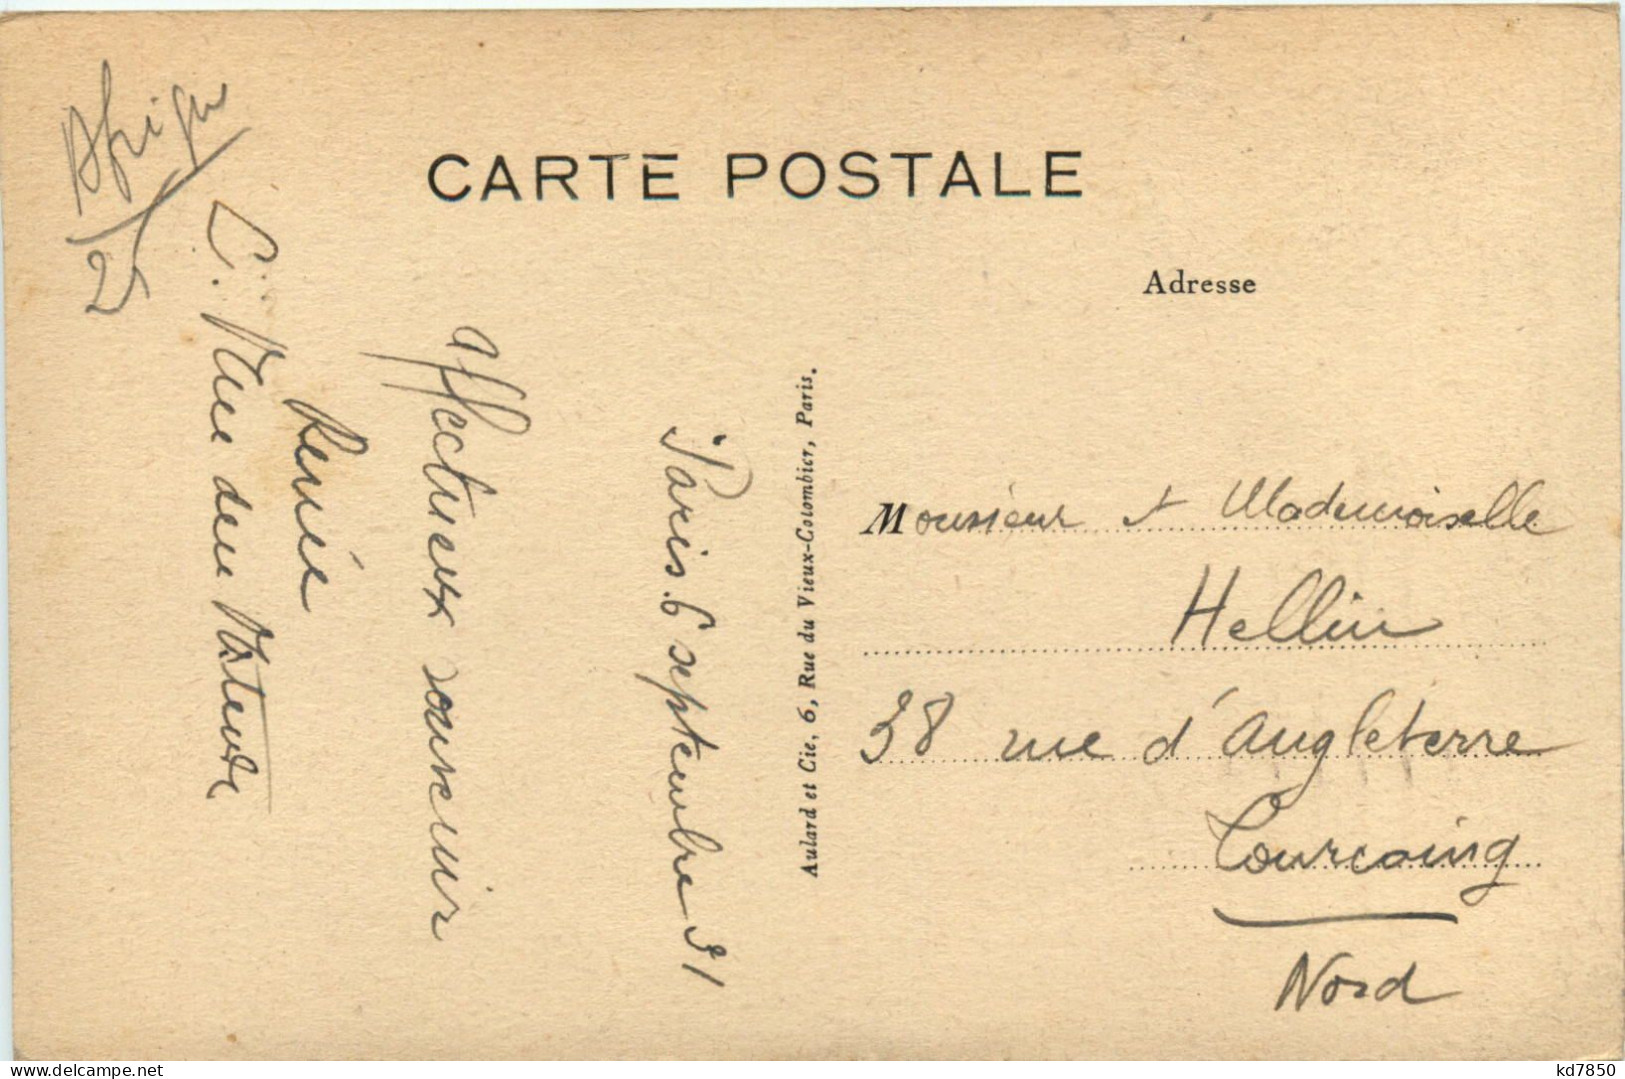 Afrique
2
CARTE POSTALE
Adresse
Paris 6 septembre 31
affectueux souvenir
Renée
Rue des
Aulard et Cie, 6, Rue du Vieux-Colombier, Paris.
Monsieur et Mademoiselle
Hellin
38 rue d'Angleterre
Tourcoing
Nord
kd7850